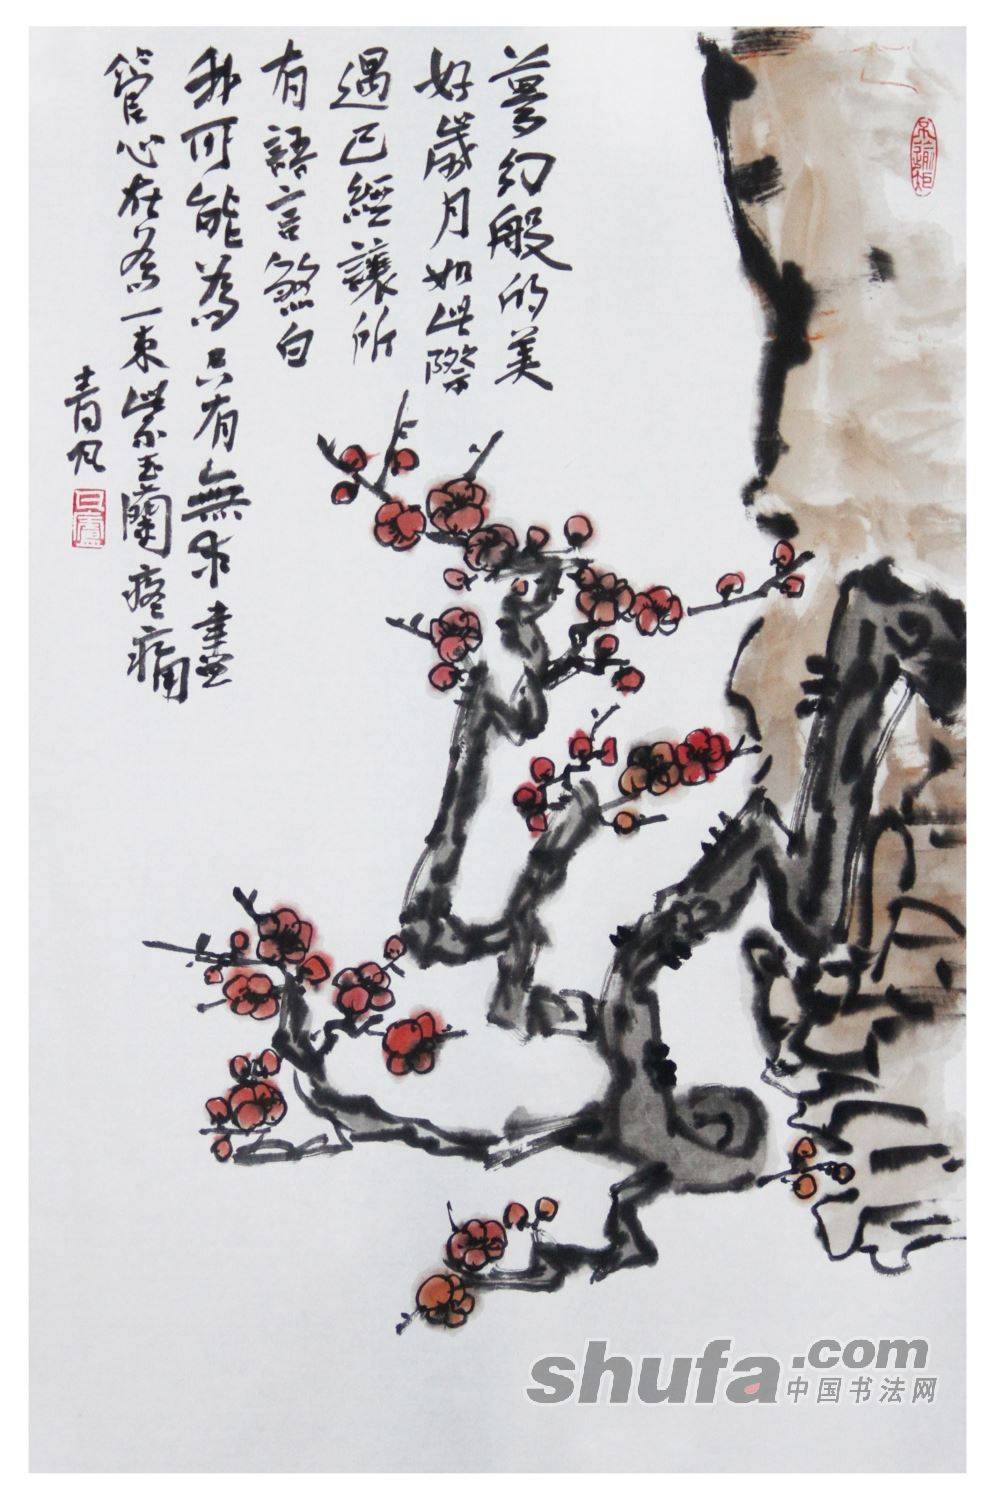 夢幻般的美
好歲月如此際
遇已經讓所
有語言煞白
我所能為只有無求盡
管心在為一束紫玉蘭疼痛
青凡
不逾矩
shufa.com
中国书法网